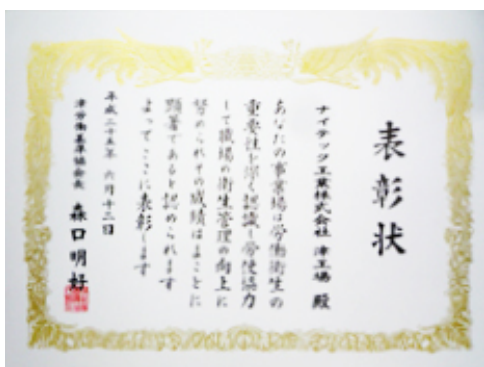 表彰状
ナイテック工業株式会社 津工場 殿
あなたの事業場は労働衛生の
重要性を深く認識し労使協力
して職場の衛生管理の向上に
努められその成績はまことに
顕著であると認められます
よってここに表彰します
平成二十五年 六月十二日
津労働基準協会長 森口明好